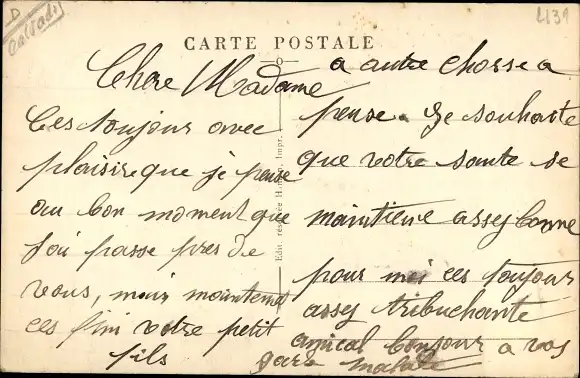 D
Calvados
4139
CARTE POSTALE
Chere Madame
Ces toujour avec
plaisir que je pense
au bon moment que
j'ai passe pres de
vous, mais maintenant
ces fini votre petit
fils
a autre chosse a
pense. Je souhaite
que votre sante se
maintiene assez bonne
pour moi ces toujour
assez tribuchante
amical bonjour a vos
gars malade
Edit. Impr.